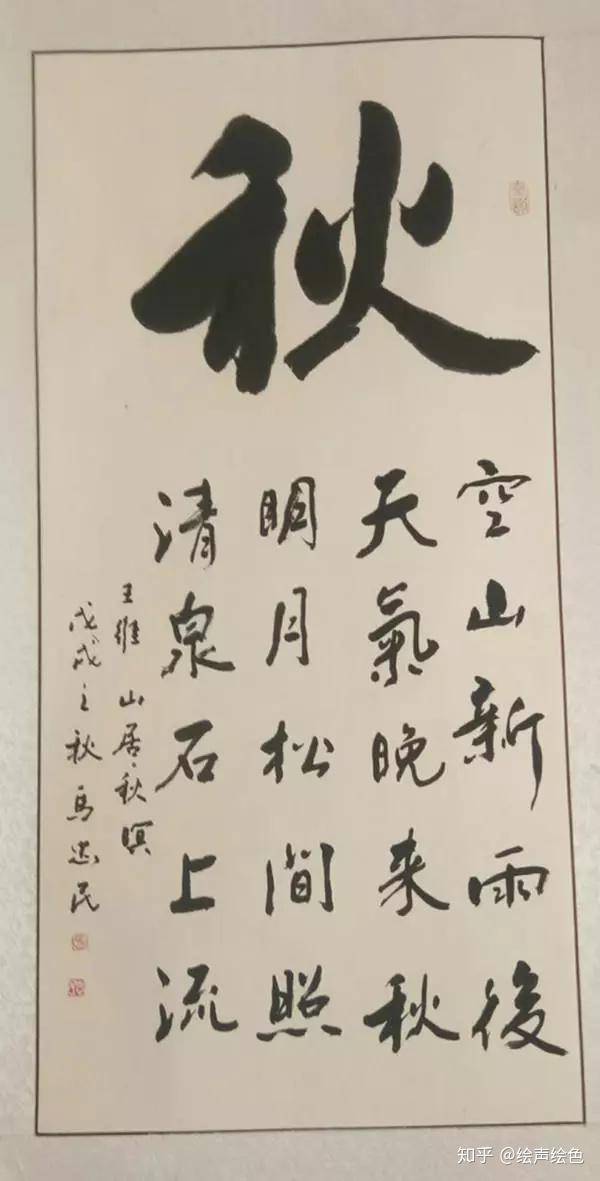 秋
空山新雨後
天氣晚来秋
明月松间照
清泉石上流
王維 山居秋暝
戊戌之秋 馬忠民
知乎 @绘声绘色